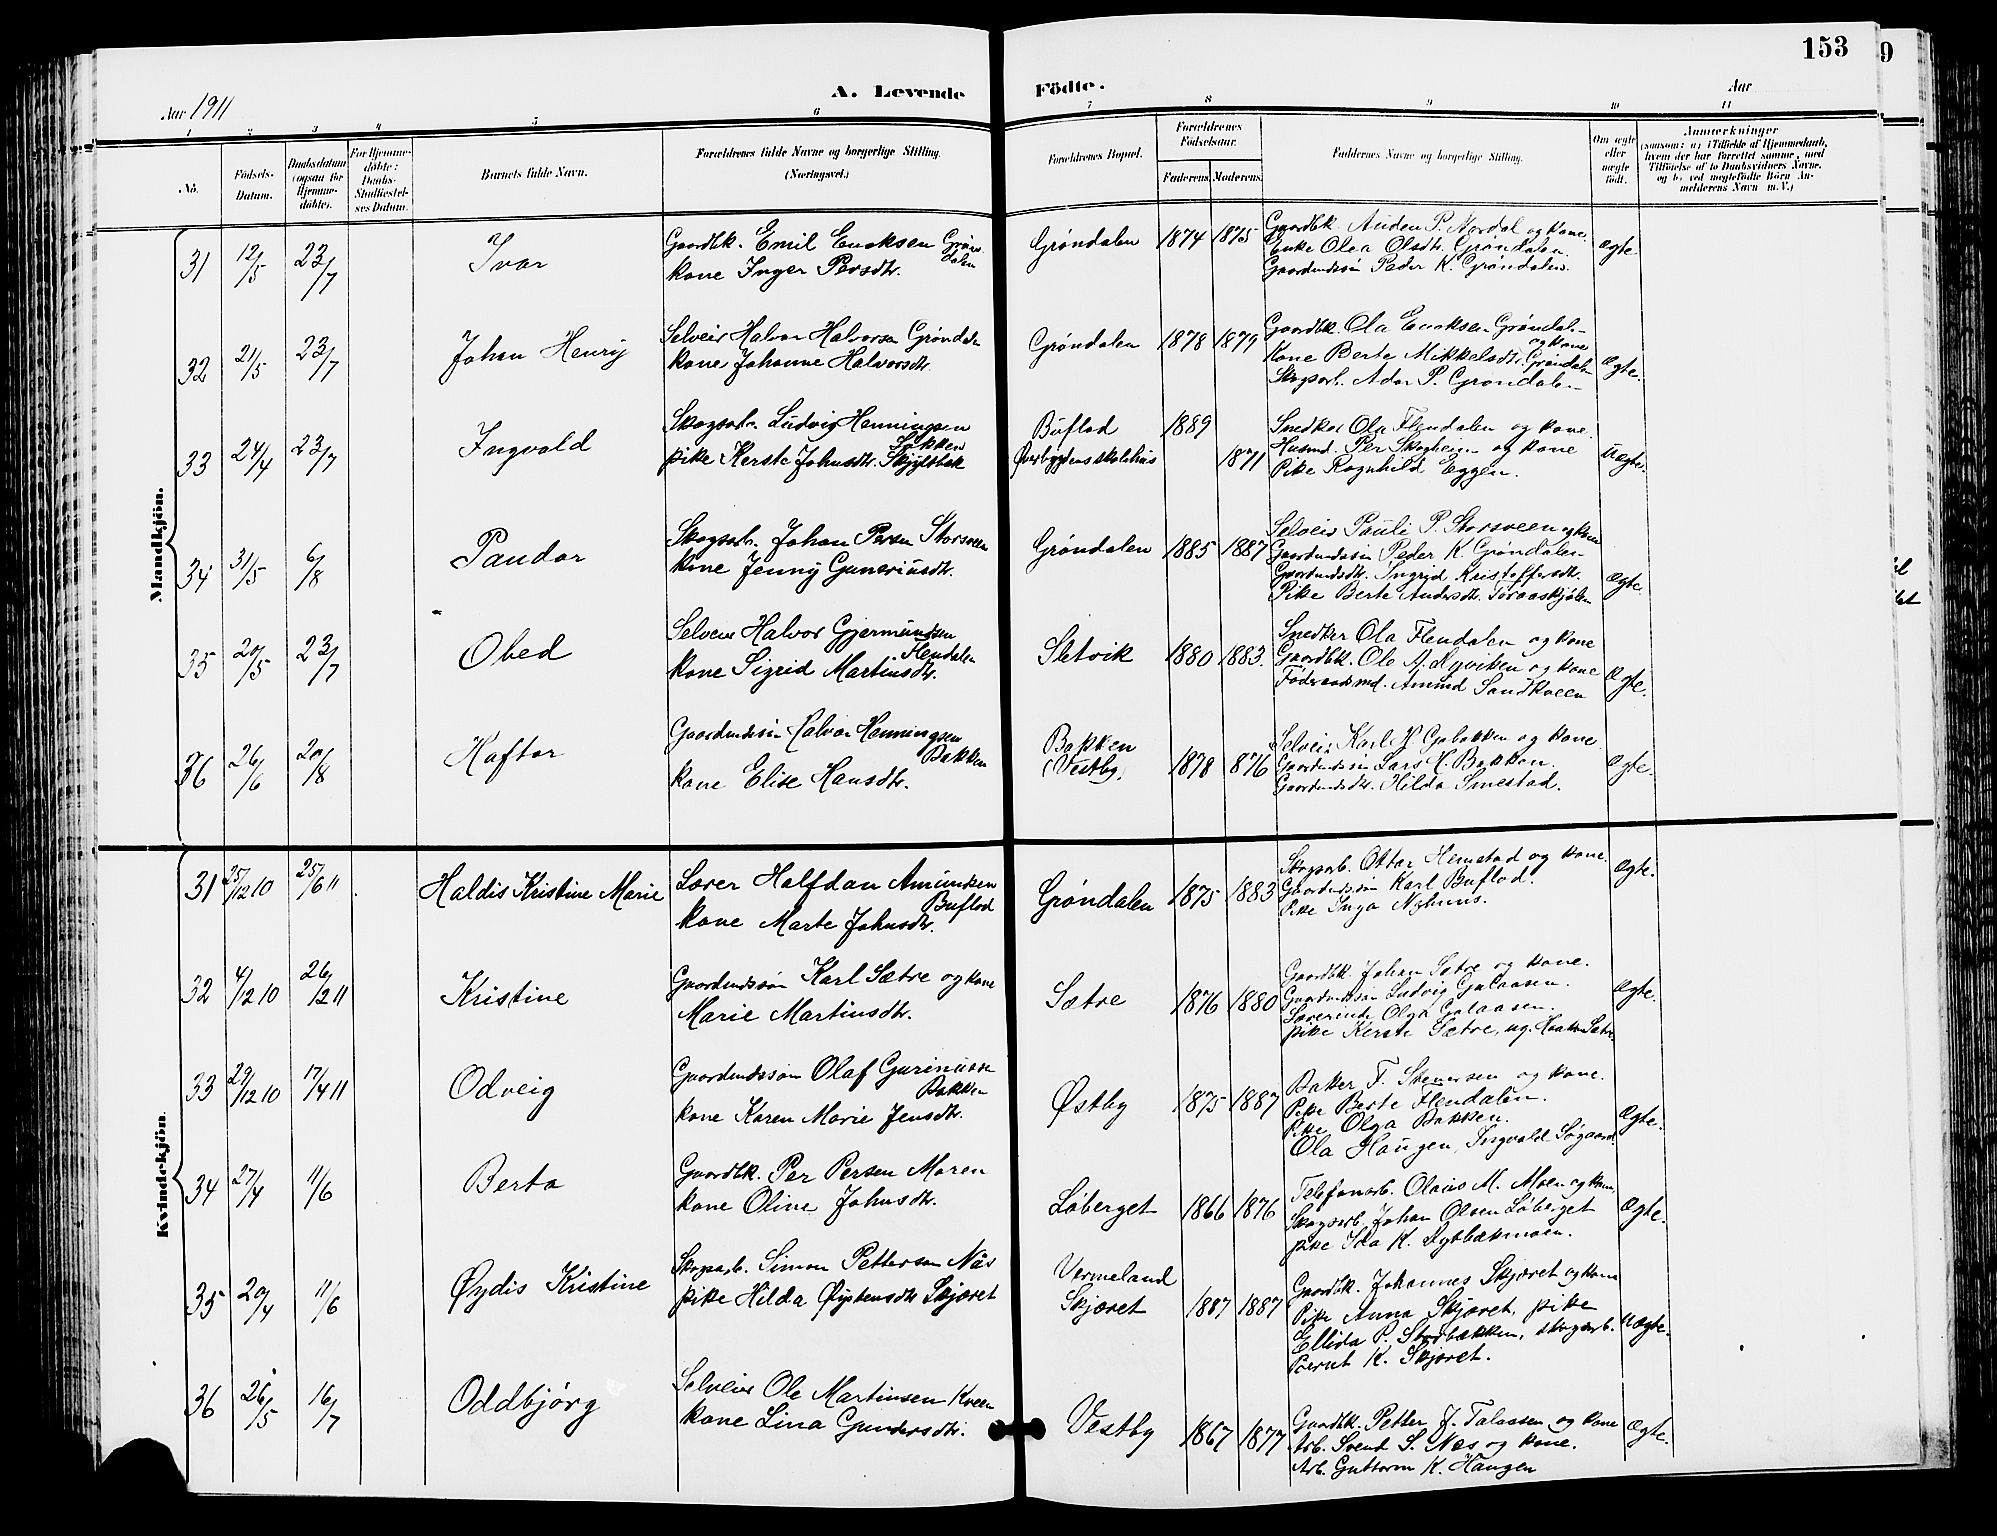 153
9
Aar 1911
A. Levende Födte.
Aar
1 2 3 4 5 6 7 8 9 10 11
No.
Födsels-Datum.
Daabsdatum (ogsaa for Hjemme-döbte).
For Hjemme-döbte: Daabs-Stadfæstel-ses Datum.
Barnets fulde Navn.
Forældrenes fulde Navne og borgerlige Stilling. (Næringsvei.)
Forældrenes Bopæl.
Forældrenes Födselsaar.
Faderens. Moderens.
Faddernes Navne og borgerlige Stilling.
Om ægte eller uægte födt.
Anmærkninger
(saasom: a) i Tilfælde af Hjemmedaab, hvem der har forrettet samme, med Tilföielse af to Daabsvidners Navne, og b) ved uægtefödte Börn An-melderens Navn m. V.)
Mandkjön.
31 12/5 23/7 Ivar
Gaardbk. Emil Enoksen Grøndalen
kone Inger Persdtr.
Grøndalen 1874 1875
Gaardbk. Auden P. Nordal og kone.
Enke Olea Olsdtr. Grøndalen.
Gaardmdssøn Peder K. Grøndalen.
ægte
32 21/5 23/7 Johan Henry
Selveier Halvor Halvorsen Grøndalen
kone Johanne Halvorsdtr.
Grøndalen 1878 1879
Gaardbk. Ola Enoksen Grøndal- og kone
Kone Berte Mikkelsdtr. Grøndalen
Skogsarb. Adar P. Grøndalen
ægte.
33 24/4 23/7 Ingvald
Skogsarb. Ludvig Henningsen Løkken
pike Kerste Johnsdtr. Skjylbæk
Buflod
Øverbygdens skolehus
1889 1871
Snedker Ola Flendalen og kone.
Husmd. Per Skogheim og kone
Pike Ragnhild Eggen.
Uægte.
34 31/5 6/8 Pandor
Skogsarb. Johan Persen Storsveen
kone Jenny Guneriusdtr.
Grøndalen 1885 1887
Selveier Pauli P. Storsveen og kone
Gaardmdssøn Peder K. Grøndalen
Gaardmdsdtr. Ingrid Kristoffersdtr.
Pike Berte Andersdtr. Toraaskjølen
Ægte.
35 20/5 23/7 Obed
Selveier Halvor Gjermundsen Flendalen
kone Sigrid Martinusdtr.
Sletvik 1880 1883.
Snedker Ola Flendalen og kone
Gaardbk. Ole A. Nyviken og kone
Føderaadsmd. Amund Sandkveen
Ægte.
36 26/6 20/8 Haftor
Gaardmdssøn Halvor Henningsen Bakken
kone Elise Hansdtr.
Bakken
(Vestby)
1878 1876
Selveier Karl H. Galaakken og kone
Gaardmdssøn Lars H. Bakken.
Gaardmdsdtr. Hilda Smestad.
Ægte.
Kvindekjön.
31 25/12 10 25/6 11 Haldis Kristine Marie
Lærer Halfdan Amundsen Buflod
kone Marte Johnsdtr.
Grøndalen 1875 1883
Skogsarb. Ottar Hemstad og kone.
Gaardmdssøn Karl Buflod.
Pike Inga Nyhuus.
Ægte.
32 4/12 10 26/12 11 Kristine
Gaardmdssøn Karl Sætre og kone
Marie Martinsdtr.
Sætre 1876 1880
Gaardbk. Johan Sætre og kone.
Gaardmdssøn Ludvig Galaasen.
Lærerinde Olga Galaasen.
pike Kerste Sætre, ug. Haakon Sætre
Ægte.
33 29/12 10 17/4 11 Odveig
Gaardmdssøn Olaf Gunnerusen Bakken
kone Karen Marie Jensdtr.
Østby 1875 1887
Baker T. Stenersen og kone.
Pike Berte Flendalen.
Pike Olga Bakken.
Ola Haugen, Ingvald Søgaard
Ægte.
34 27/4 11/6 Berta
Gaardbk. Per Persen Moren
kone Oline Johnsdtr.
Løberget 1866 1876
Telefonarb. Olaus M. Moen og kone.
Skogsarb. Johan Olsen Løberget
pike Ida K. Nybækmoen.
Ægte.
35 20/4 11/6 Øydis Kristine
Skogsarb. Simon Petterson Näs
pike Hilda Øystensdtr Skjæret
Vermeland
Skjæret
1887 1887
Gaardbk. Johannes Skjæret og kone
Pike Anna Skjæret, pike
Ellida P. Storbækken, skogsarb.
Bernt K. Skjæret.
Uægte.
36 26/5 16/7 Oddbjørg
Selveier Ole Martinsen Kveen
kone Lina Gundersdtr.
Vestby 1867 1877
Gaardbk. Petter J. Galaasen og kone
Arb. Svend S. Næs og kone.
Arb. Guttorm K. Haugen
Ægte.